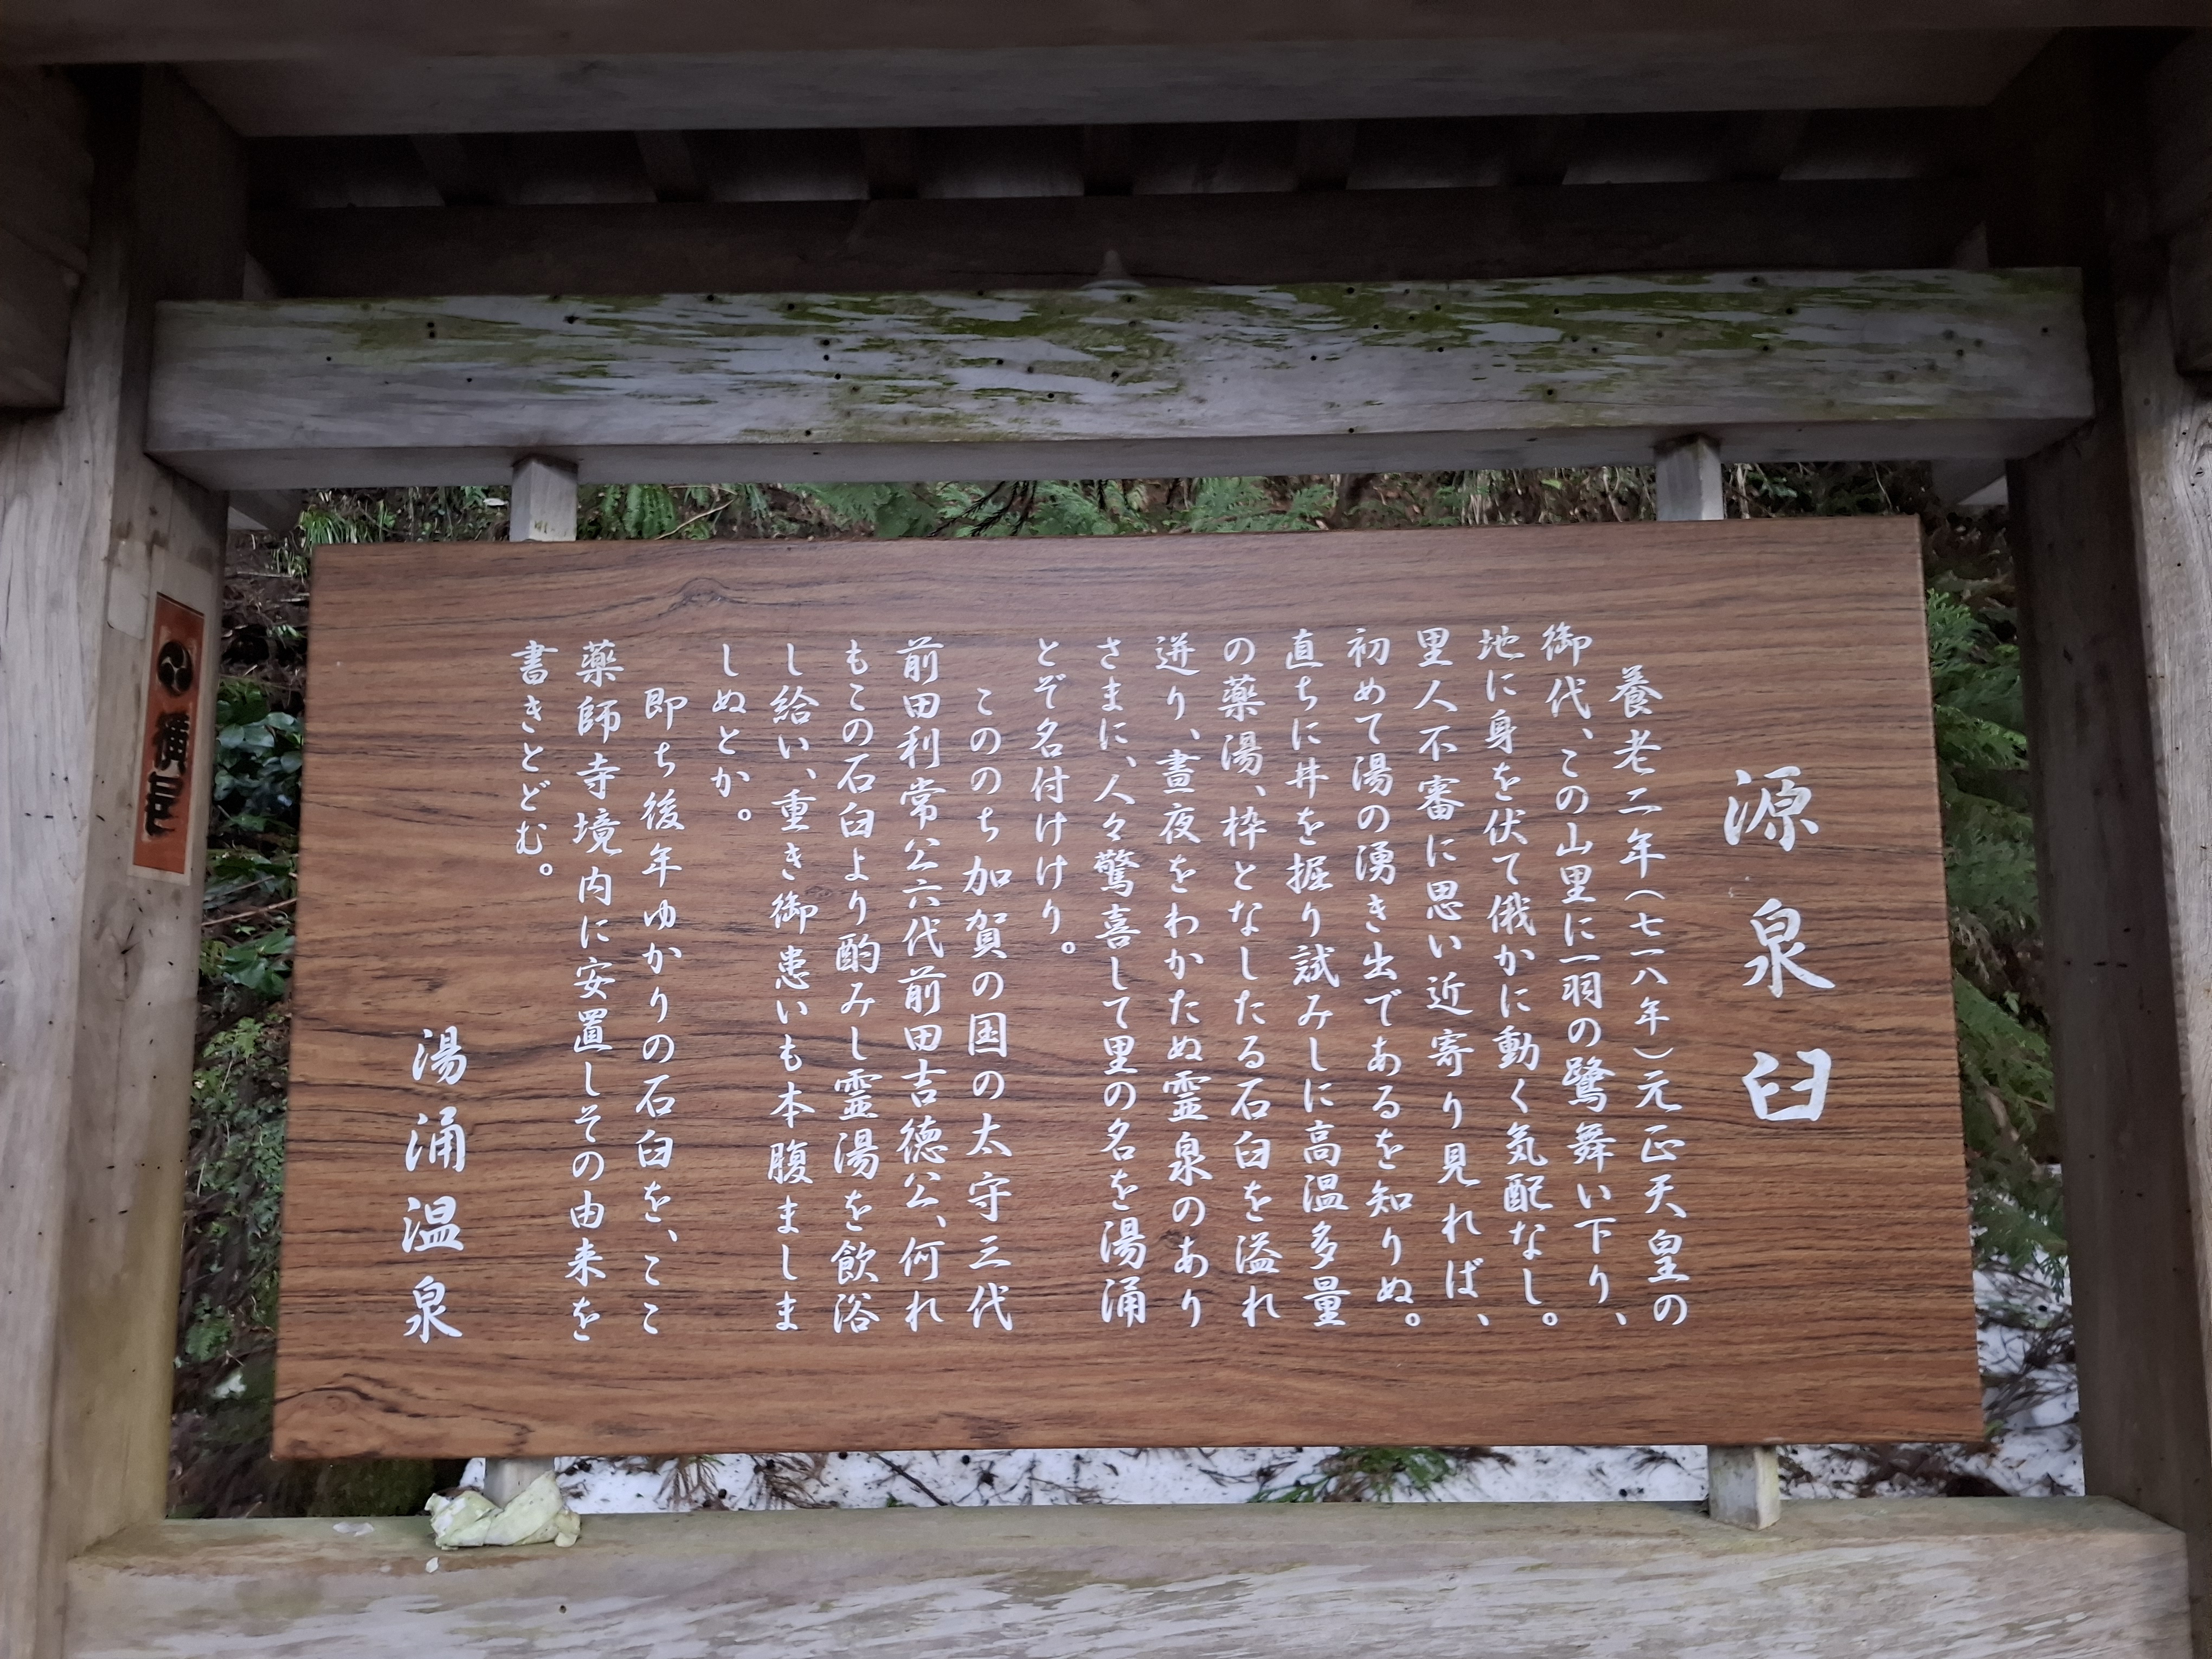 源泉臼
養老二年（七一八年）元正天皇の
御代、この山里に一羽の鷺舞い下り、
地に身を伏て俄かに動く気配なし。
里人不審に思い近寄り見れば、
初めて湯の湧き出であるを知りぬ。
直ちに井を掘り試みしに高温多量
の薬湯、枠となしたる石臼を溢れ
迸り、晝夜をわかたぬ霊泉のあり
さまに、人々驚喜して里の名を湯涌
とぞ名付けけり。
このち加賀の国の太守三代
前田利常公六代前田吉徳公、何れ
もこの石臼より酌みし霊湯を飲浴
し給い、重き御患いも本腹ましま
しぬとか。
即ち後年ゆかりの石臼を、ここ
薬師寺境内に安置しその由来を
書きとどむ。
湯涌温泉
横尾